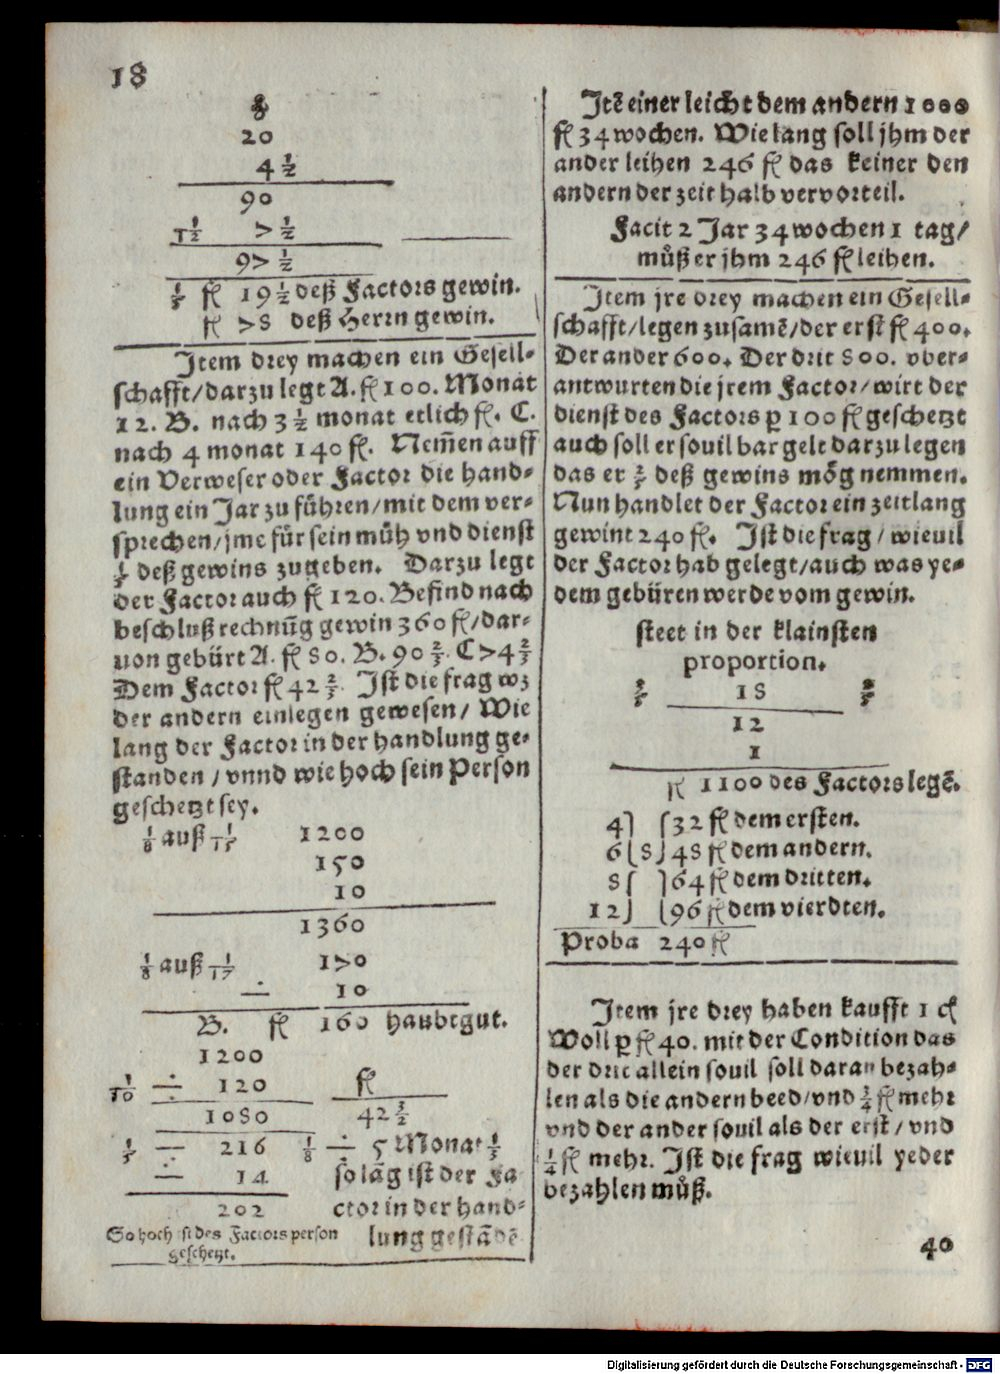 18
20
4 1/2
90
1 1/2 7 1/2
97 1/2
1/5 fl 19 1/2 deß Factors gewin.
fl 78 deß Herrn gewin.
Item drey machen ein Gesell-
schafft/darzu legt A. fl 100. Monat
12. B. nach 3 1/2 monat etlich fl. C.
nach 4 monat 140 fl. Nem̃en auff
ein Verweser oder Factor die hand-
lung ein Jar zu führen/mit dem ver-
sprechen/jme für sein müh vnd dienst
1/5 deß gewins zugeben. Darzu legt
der Factor auch fl 120. Befind nach
beschluß rechnūg gewin 360 fl/dar-
uon gebürt A. fl 80. B. 90 2/3 C 74 2/3
Dem Factor fl 42 2/3. Ist die frag wz
der andern einlegen gewesen/ Wie
lang der Factor in der handlung ge-
standen/vnnd wie hoch sein Person
geschetzt sey.
1/8 auß 1/15 1200
150
10
1360
1/8 auß 1/17 170
÷ 10
B. fl 160 haubtgut.
1200
1/10 ÷ 120 fl
1080 42 2/3
1/5 ÷ 216 1/8 ÷ 5 Monat 1/3
÷ 14 so lāg ist der Fa
202 ctor in der hand-
So hoch ist des Factors person lung gestādē
geschetzt.
Itē einer leicht dem andern 1000
fl 34 wochen. Wie lang soll jhm der
ander leihen 246 fl das keiner den
andern der zeit halb vervorteil.
Facit 2 Jar 34 wochen 1 tag/
müß er jhm 246 fl leihen.
Item jre drey machen ein Gesell-
schafft/legen zusamē/der erst fl 400.
Der ander 600. Der drit 800. vber-
antwurten die jrem Factor/wirt der
dienst des Factors p 100 fl geschetzt
auch soll er souil bar gelt darzu legen
das er 2/5 deß gewins mög nemmen.
Nun handlet der Factor ein zeitlang
gewint 240 fl. Ist die frag/wieuil
der Factor hab gelegt/auch was ye-
dem gebüren werde vom gewin.
steet in der klainsten
proportion.
2/5 18 2/5
12
1
fl 1100 des Factors legē.
4 32 fl dem ersten.
6 8 48 fl dem andern.
8 64 fl dem dritten.
12 96 fl dem vierdten.
Proba 240 fl
Item jre drey haben kaufft 1 ct
Woll p fl 40. mit der Condition das
der drit allein souil soll daran bezah-
len als die andern beed/vnd 3/4 fl mehr
vnd der ander souil als der erst/vnd
1/4 fl mehr. Ist die frag wieuil yeder
bezahlen müß.
40
Digitalisierung gefördert durch die Deutsche Forschungsgemeinschaft - DFG